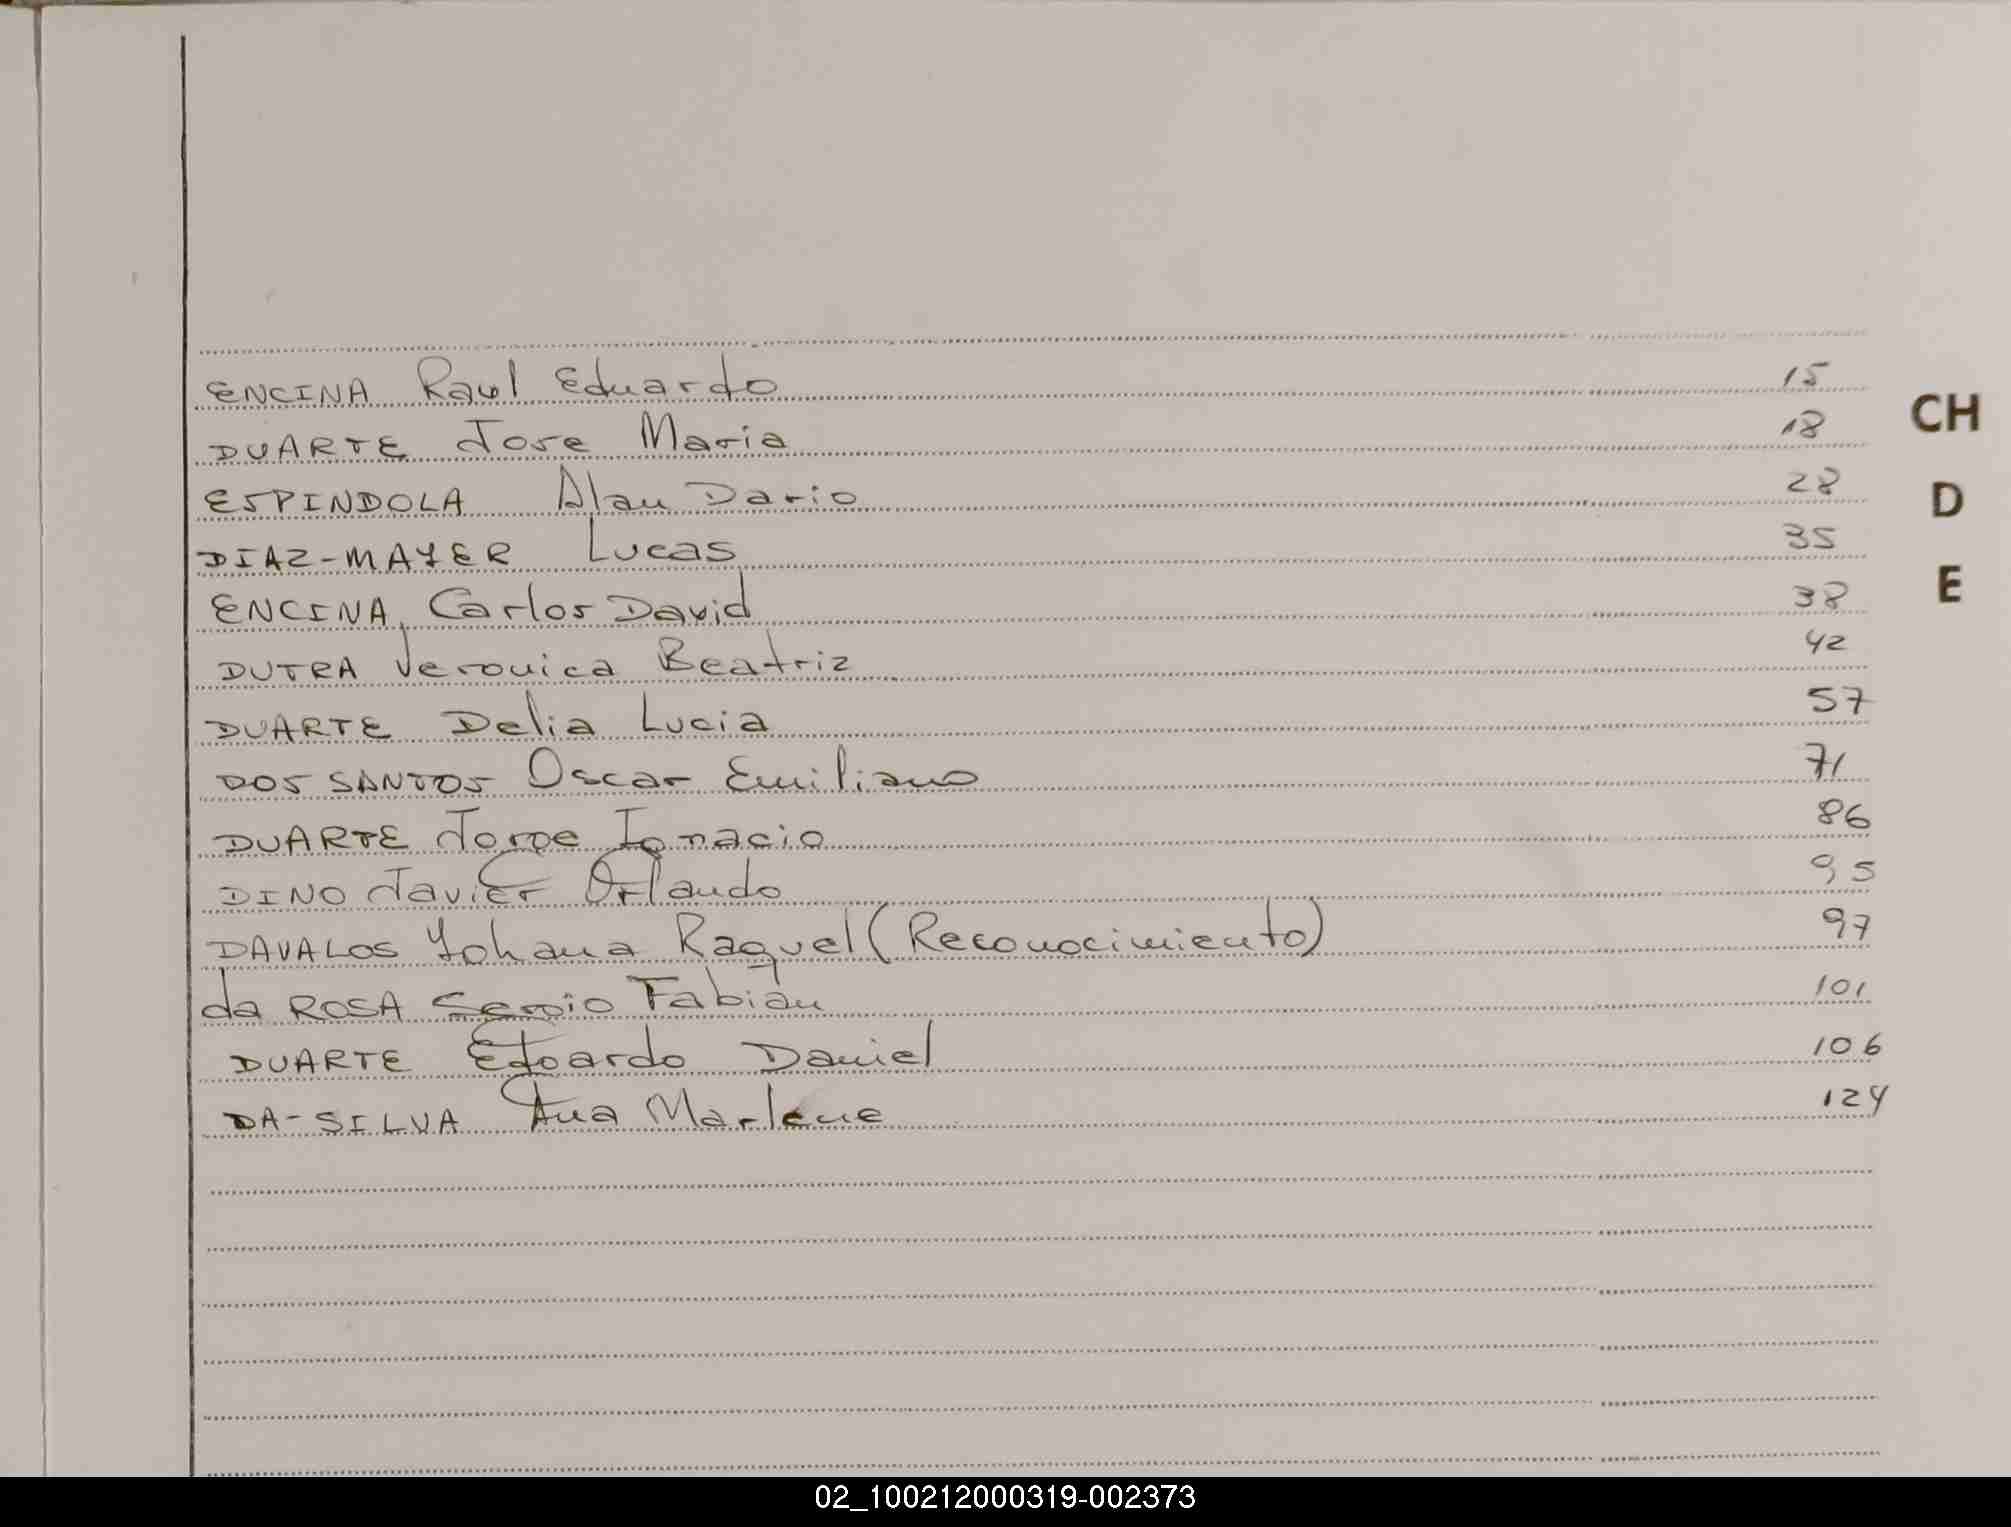 ENCINA Raul Eduardo 15
DUARTE Jose Maria 18
ESPINDOLA Alan Dario 28
DIAZ-MAYER Lucas 35
ENCINA Carlos David 38
DUTRA Veronica Beatriz 42
DUARTE Delia Lucia 57
DOS SANTOS Oscar Emiliano 71
DUARTE Jorge Ignacio 86
DINO Javier Orlando 95
DAVALOS Yohana Raquel (Reconocimiento) 97
da ROSA Sergio Fabian 101
DUARTE Edgardo Daniel 106
DA-SILVA Ana Marlene 124
CH
D
E
02_100212000319-002373